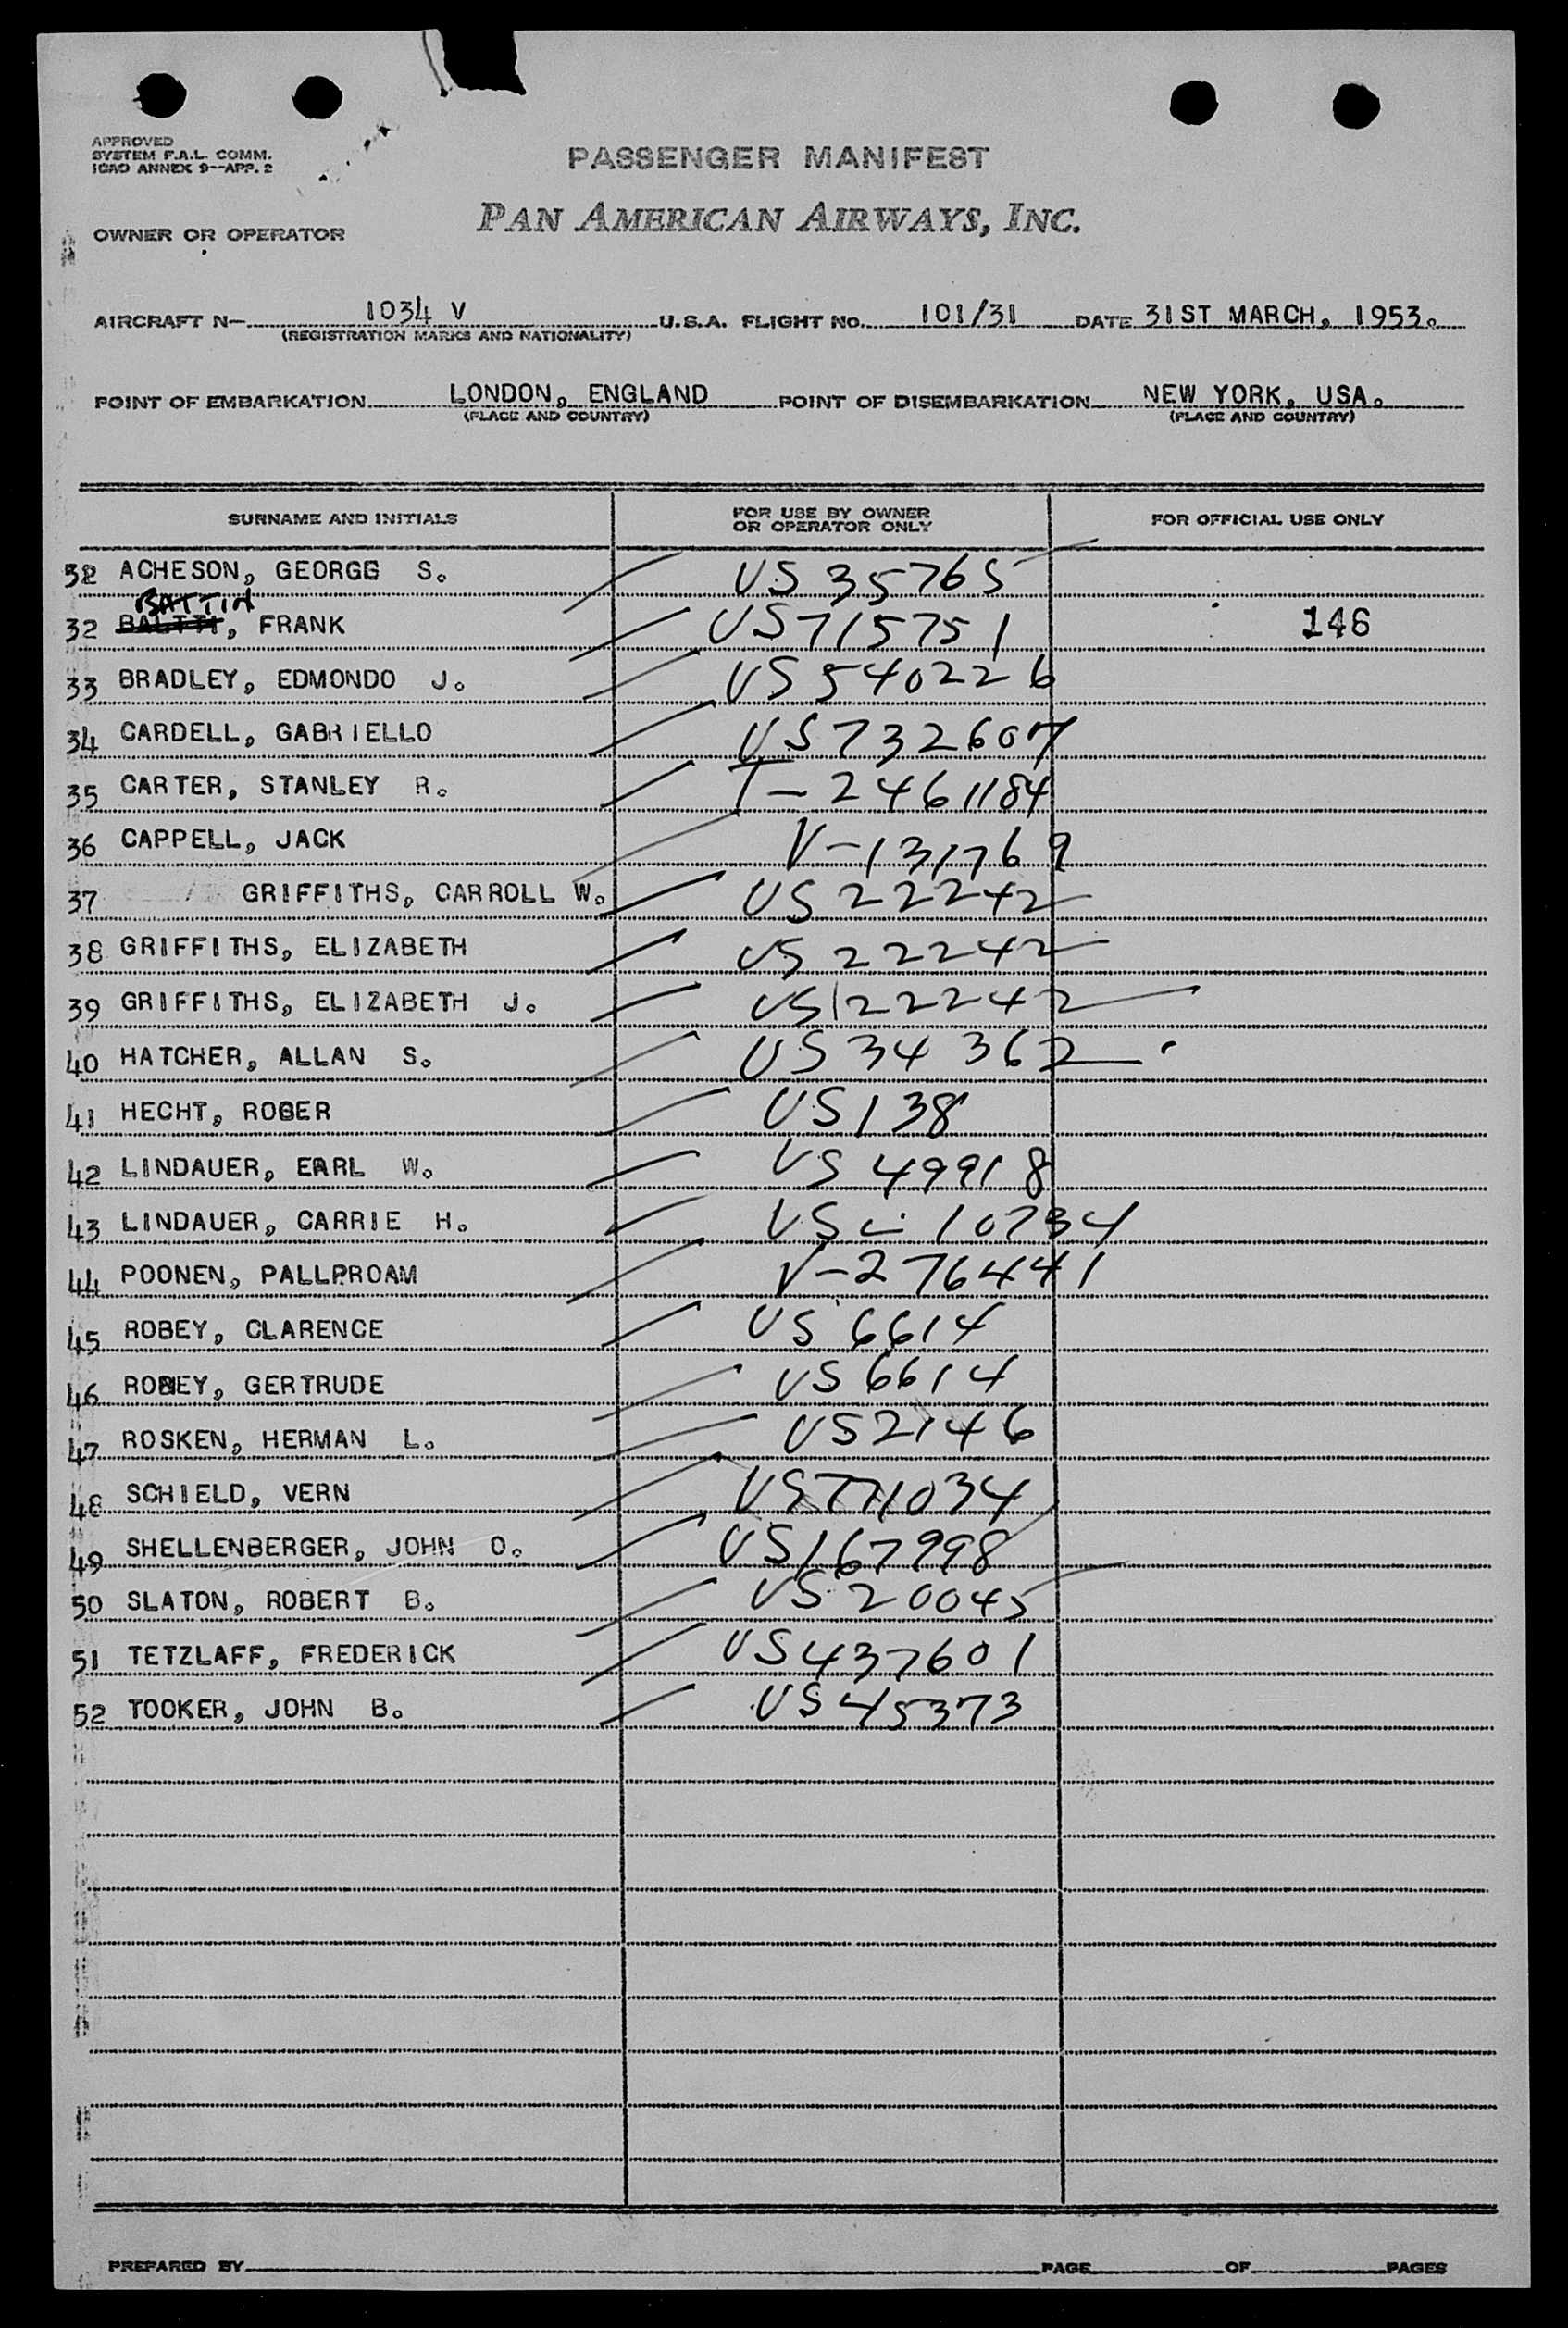 APPROVED
SYSTEM F.A.L. COMM.
ICAO ANNEX 9--APP. 2
PASSENGER MANIFEST
PAN AMERICAN AIRWAYS, INC.
OWNER OR OPERATOR
AIRCRAFT N- 1034 V U.S.A. FLIGHT No. 101/31 DATE 31ST MARCH, 1953.
(REGISTRATION MARKS AND NATIONALITY)
POINT OF EMBARKATION LONDON, ENGLAND POINT OF DISEMBARKATION NEW YORK, USA.
(PLACE AND COUNTRY) (PLACE AND COUNTRY)
SURNAME AND INITIALS FOR USE BY OWNER OR OPERATOR ONLY FOR OFFICIAL USE ONLY
ACHESON, GEORGE S. US 35765
BATTIN
32 , FRANK US 715751 146
33 BRADLEY, EDMONDO J. US 540226
34 CARDELL, GABRIELLO US 732607
35 CARTER, STANLEY R. T-2461184
36 CAPPELL, JACK V-131769
37 GRIFFITHS, CARROLL W. US 22242
38 GRIFFITHS, ELIZABETH US 22242
39 GRIFFITHS, ELIZABETH J. US 22242
40 HATCHER, ALLAN S. US 34362
41 HECHT, ROGER US 138
42 LINDAUER, EARL W. US 49918
43 LINDAUER, CARRIE H. US 10734
44 POONEN, PALLPROAM V-276441
45 ROBEY, CLARENCE US 6614
46 ROBEY, GERTRUDE US 6614
47 ROSKEN, HERMAN L. US 2146
48 SCHIELD, VERN US 771034
49 SHELLENBERGER, JOHN O. US 167998
50 SLATON, ROBERT B. US 20045
51 TETZLAFF, FREDERICK US 437601
52 TOOKER, JOHN B. US 45373
PREPARED BY PAGE OF PAGES